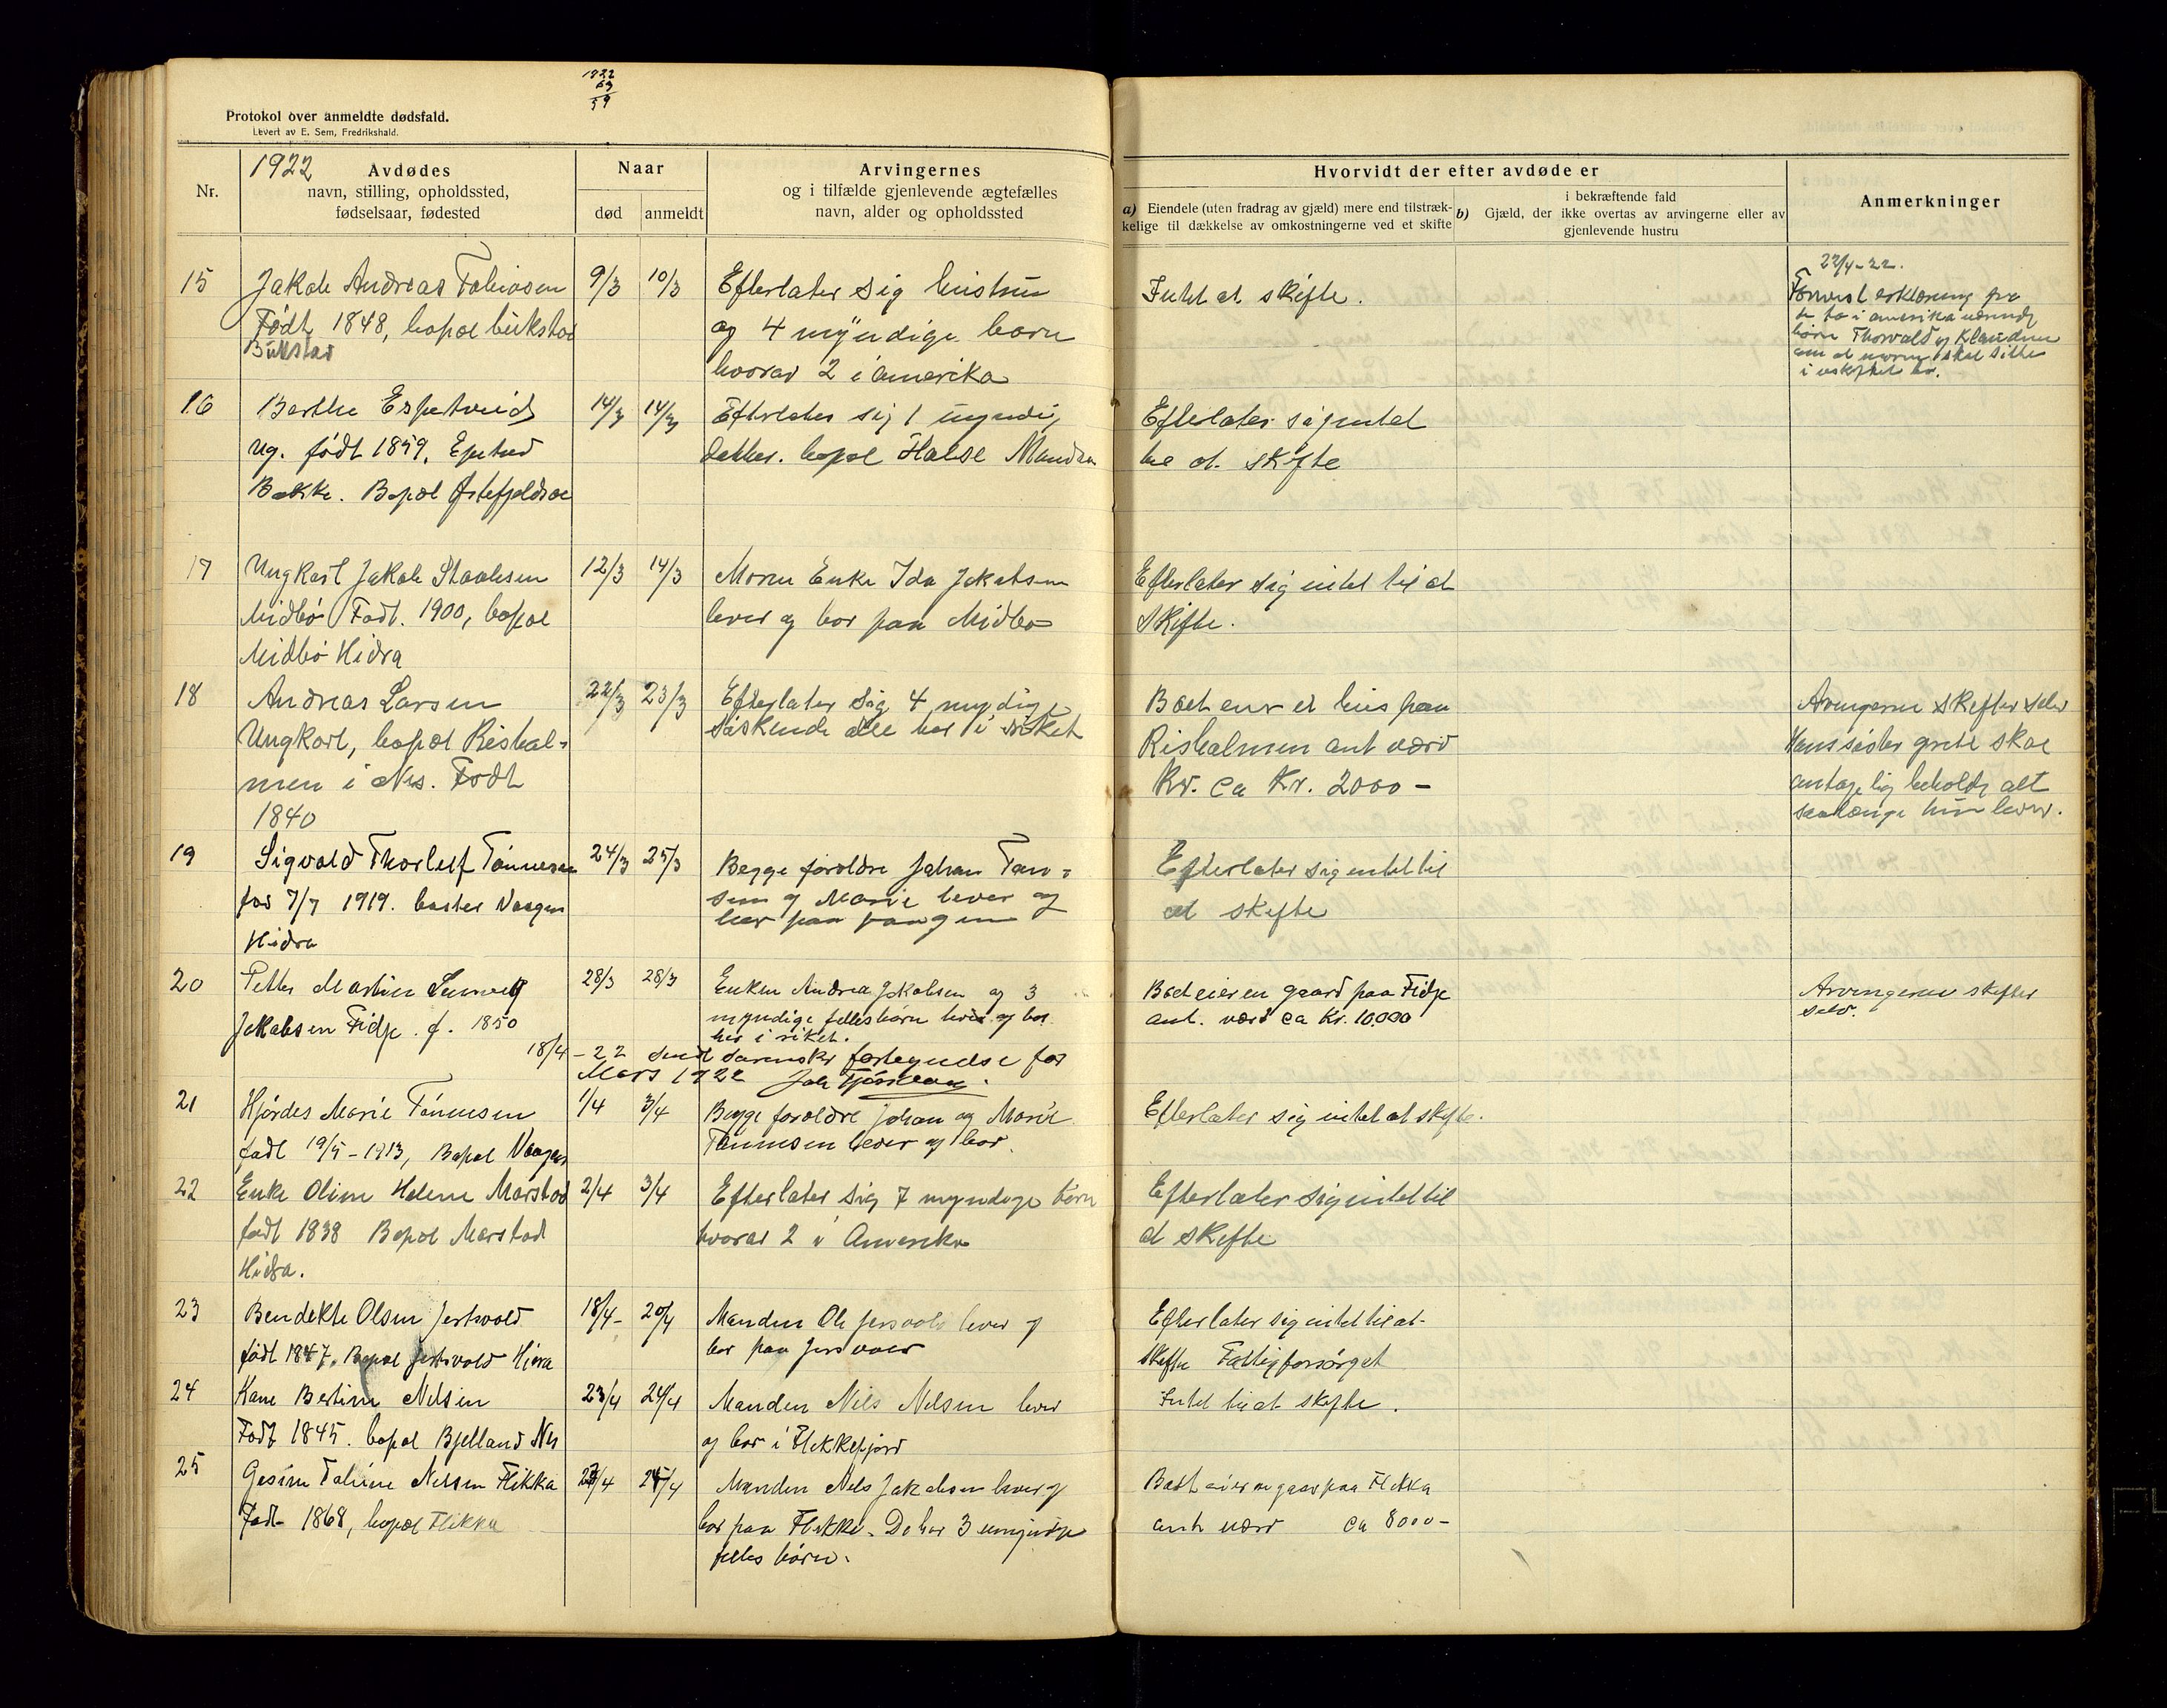 1922
63
59
Protokol over anmeldte dødsfald.
Levert av E. Sem, Fredrikshald.
Nr.
1922
Avdødes
navn, stilling, opholdssted,
fødselsaar, fødested
Naar
død
anmeldt
Arvingernes
og i tilfælde gjenlevende ægtefælles
navn, alder og opholdssted
Hvorvidt der efter avdøde er
a) Eiendele (uten fradrag av gjæld) mere end tilstræk-
kelige til dækkelse av omkostningerne ved et skifte
i bekræftende fald
b) Gjæld, der ikke overtas av arvingerne eller av
gjenlevende hustru
Anmerkninger
15
Jakob Andreas Tobiasen
Født 1848, bopæl bukstad
Bukstad
9/3
10/3
Efterlater sig hustru
og 4 myndige born
hvorav 2 i amerika
Intet at skifte.
22/4-22.
erklæring fra
de to i amerika
børn Thorvald og
i uskiftet bo.
16
Berthe
ug. født 1859.
Bakke. Bopæl
14/3
14/3
Efterlater sig 1 myndig
datter. bopæl Halse Mandal
Efterlater sig intet
til at skifte
17
Ungkarl Jakob
Midbø Født. 1900, bopæl
Midbø Hidra
12/3
14/3
Moren Enke Ida Jakobsen
lever og bor paa Midbø
Efterlater sig intet til at
skifte.
18
Andreas Larsen
Ungkarl, bopæl Reshol-
men i Nes. Født
1840
22/3
23/3
Efterlater sig 4 myndige
søskende alle bor i riket
Boet eier et hus paa
Risholmen ant værd
Kr. ca Kr. 2000 -
Arvingerne skifter selv
Hans søster grete skal
antagelig beholde alt
saalænge hun lever.
19
Sigvald Thorleif Tønnesen
fød 7/7 1919. bosted Vaagen
Hidra
24/3
25/3
Begge foreldre Johan Tøn-
sen og Marie lever og
bor paa vaagen
Efterlater sig intet til
at skifte
20
Petter Martin
Jakobsen Fidje. f. 1850
28/3
28/3
Enken Andrea Jakobsen og 3
myndige fellesbørn lever og bor
her i riket.
Boet eier en gaard paa Fidje
ant. værd ca Kr. 10.000
Arvingerne skifter
selv.
18/4 - 22 sendt fortegnelse for
Mars 1922
21
Hjørdis Marie Tønnesen
født 19/5-1913, Bopæl Vaagen
1/4
3/4
Begge foreldre Johan og Marie
Tønnesen lever og bor.
Efterlater sig intet at skifte.
22
Enke Oline Helene Marstad
født 1838 Bopæl Marstad
Hidra.
2/4
3/4
Efterlater sig 7 myndige børn
hvorav 2 i Amerika
Efterlater sig intet til
at skifte
23
Bendekte Olsen
født 1847. Bopæl
18/4-
20/4
Manden Ole lever og
bor paa
Efterlater sig intet til at-
skifte Fattigforsørget
24
Kone Bertine Nilsen
Født 1845. bopæl Bjelland Nes
23/4
24/4
Manden Nils Nelsen lever
og bor i Flekkefjord
Intet til at skifte.
25
Gesine Tobine Nilsen Flikka
Født 1868, bopæl Flikka
27/4
Manden Nils Jakobsen lever og
bor paa Flikke. De har 3 umyndige
felles børn.
Boet eier en gaar paa Flikka
ant værd ca 8000-